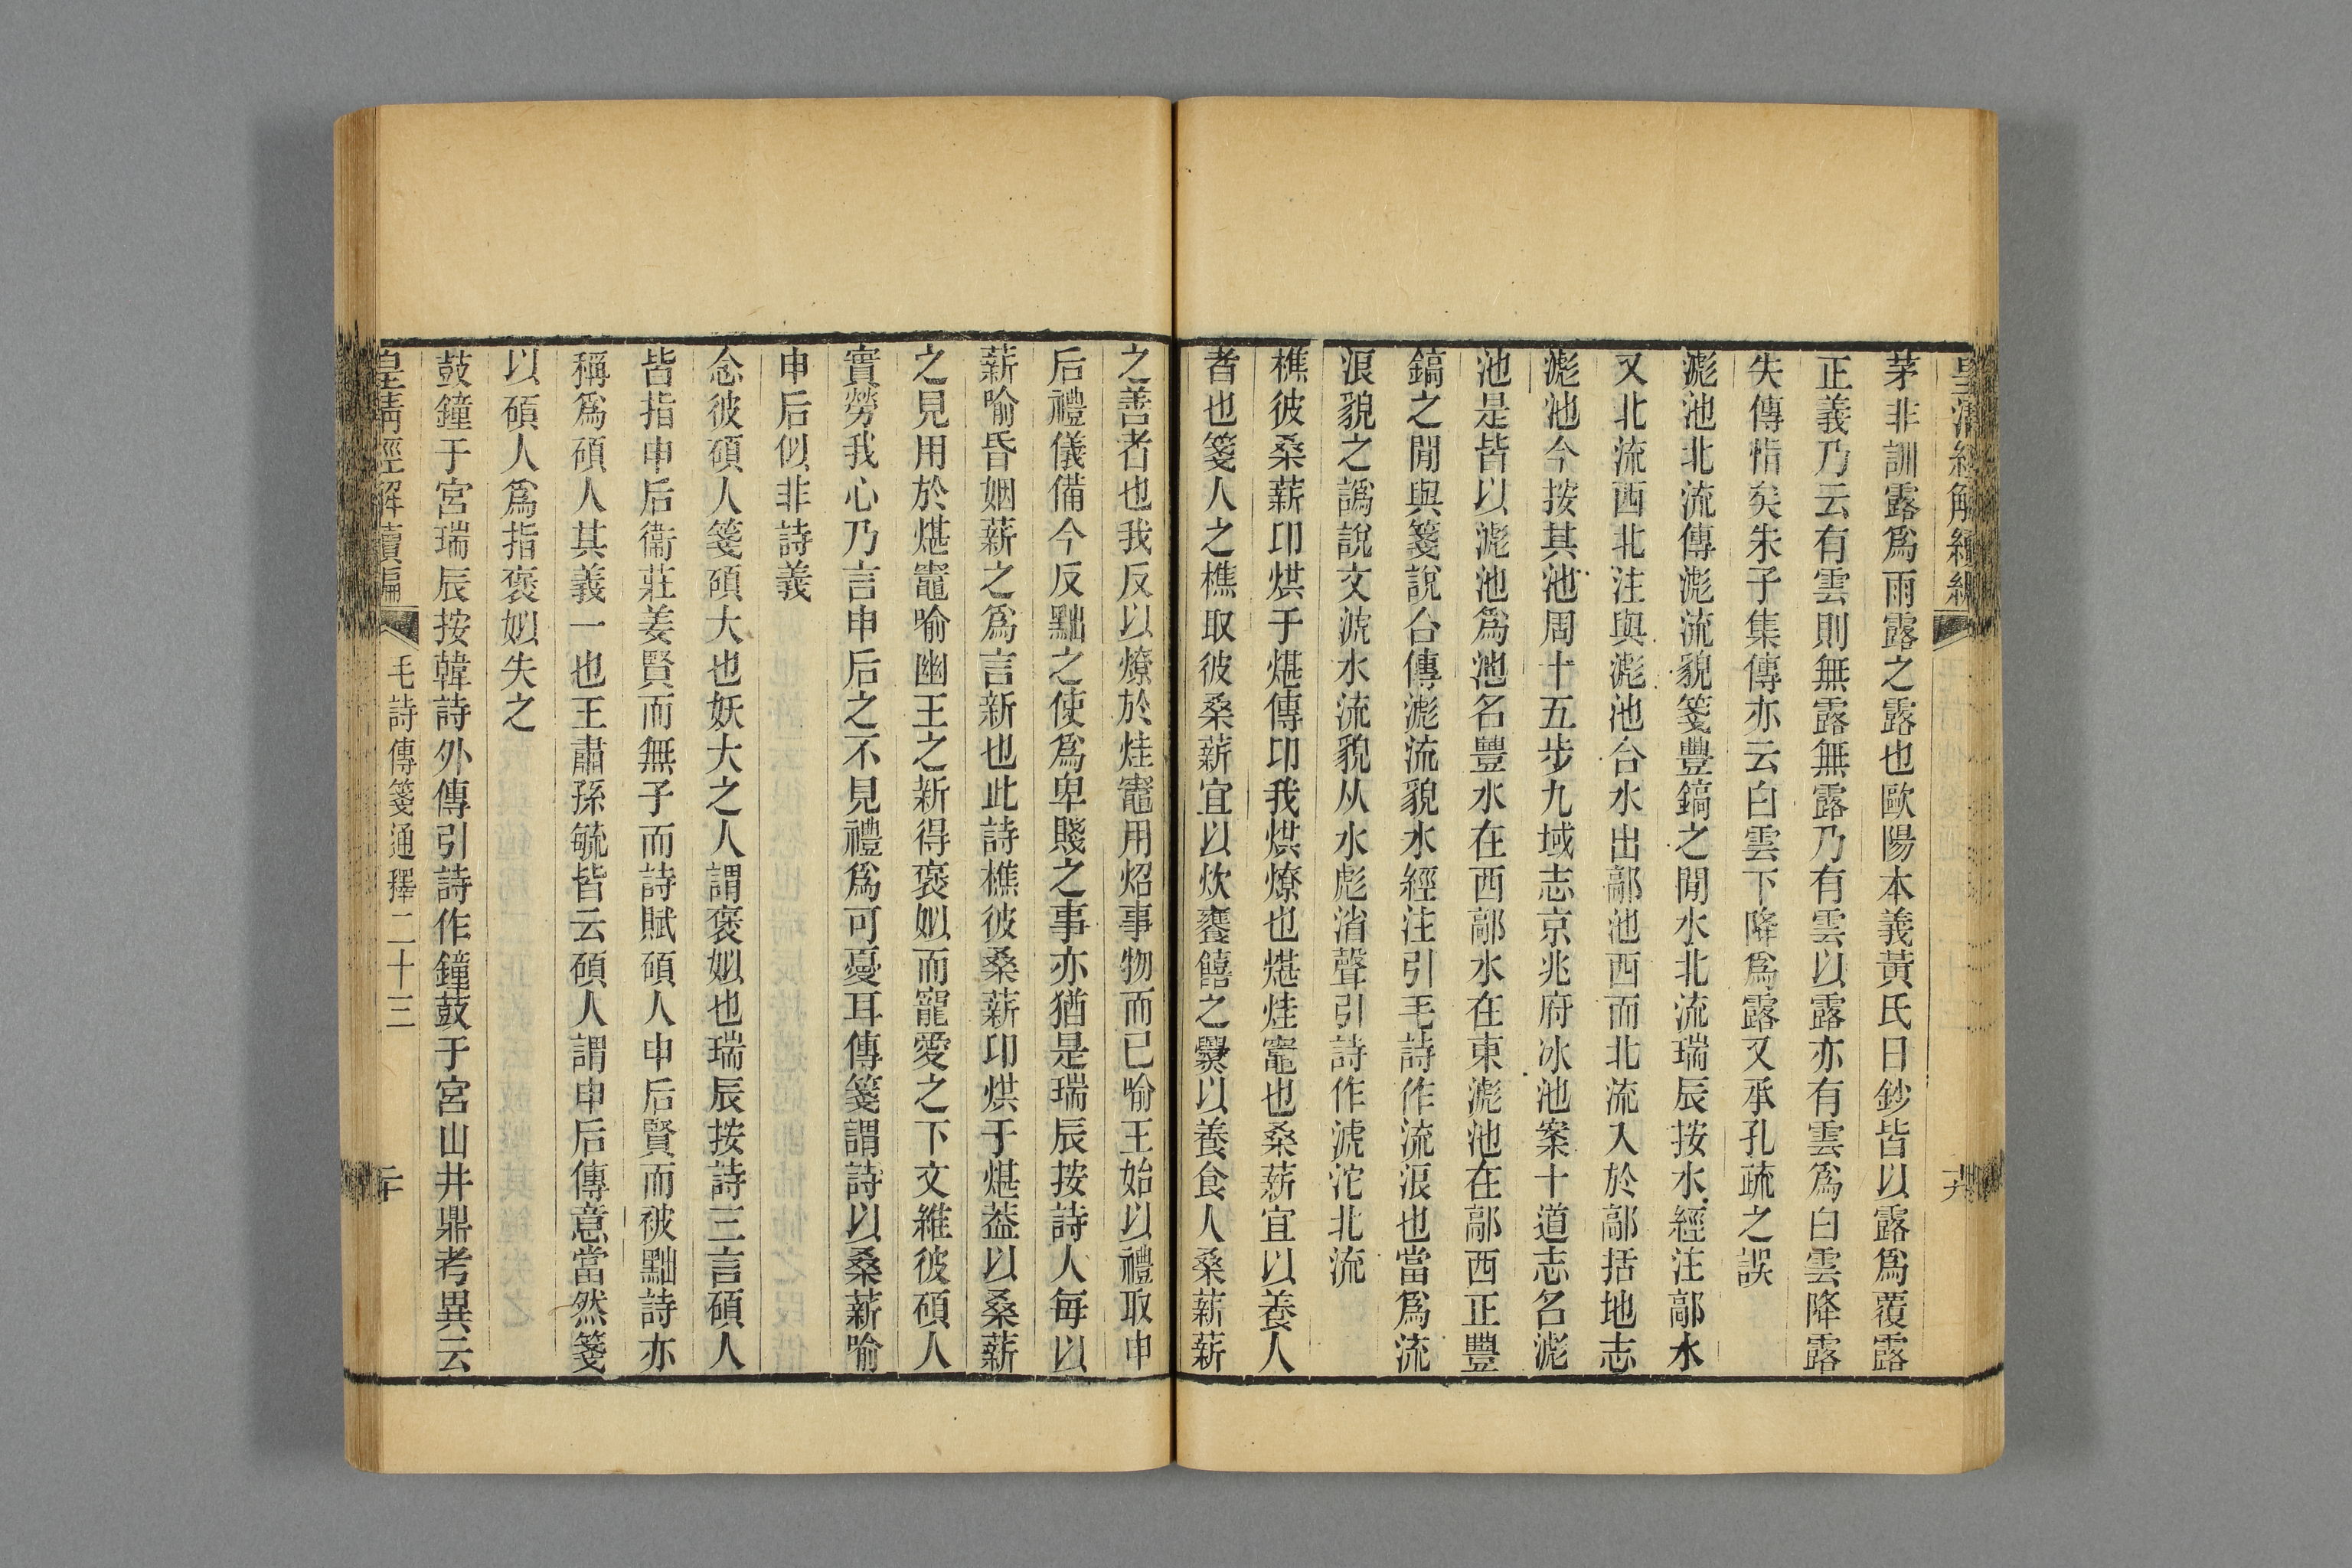 皇清經解續編
十九
茅非訓露爲雨露之露也歐陽本義黃氏日鈔皆以露爲覆露
正義乃云有雲則無露無露乃有雲以露亦有雲爲白雲降露
失傳恉矣朱子集傳亦云白雲下降爲露又承孔疏之誤
滮池北流傳滮流貌箋豐鎬之閒水北流瑞辰按水經注鄗水
又北流西北注與滮池合水出鄗池西而北流入於鄗括地志
滮池今按其池周十五步九域志京兆府冰池案十道志名滮
池是皆以滮池爲池名豐水在西鄗水在東滮池在鄗西正豐
鎬之閒與箋說合傳滮流貌水經注引毛詩作流浪也當爲流
浪貌之譌說文淲水流貌从水彪渻聲引詩作淲沱北流
樵彼桑薪卬烘于煁傳卬我烘燎也煁烓竈也桑薪宜以養人
者也箋人之樵取彼桑薪宜以炊饔饎之爨以養食人桑薪薪
之善者也我反以燎於烓竈用炤事物而已喻王始以禮取申
后禮儀備今反黜之使爲卑賤之事亦猶是瑞辰按詩人每以
薪喻昏姻薪之爲言新也此詩樵彼桑薪卬烘于煁葢以桑薪
之見用於煁竈喻幽王之新得褒姒而寵愛之下文維彼碩人
實勞我心乃言申后之不見禮爲可憂耳傳箋謂詩以桑薪喻
申后似非詩義
念彼碩人箋碩大也妖大之人謂褒姒也瑞辰按詩三言碩人
皆指申后衞莊姜賢而無子而詩賦碩人申后賢而被黜詩亦
稱爲碩人其義一也王肅孫毓皆云碩人謂申后傳意當然箋
以碩人爲指褒姒失之
鼓鐘于宮瑞辰按韓詩外傳引詩作鐘鼓于宮山井鼎考異云
皇清經解續編
毛詩傳箋通釋二十三
二十